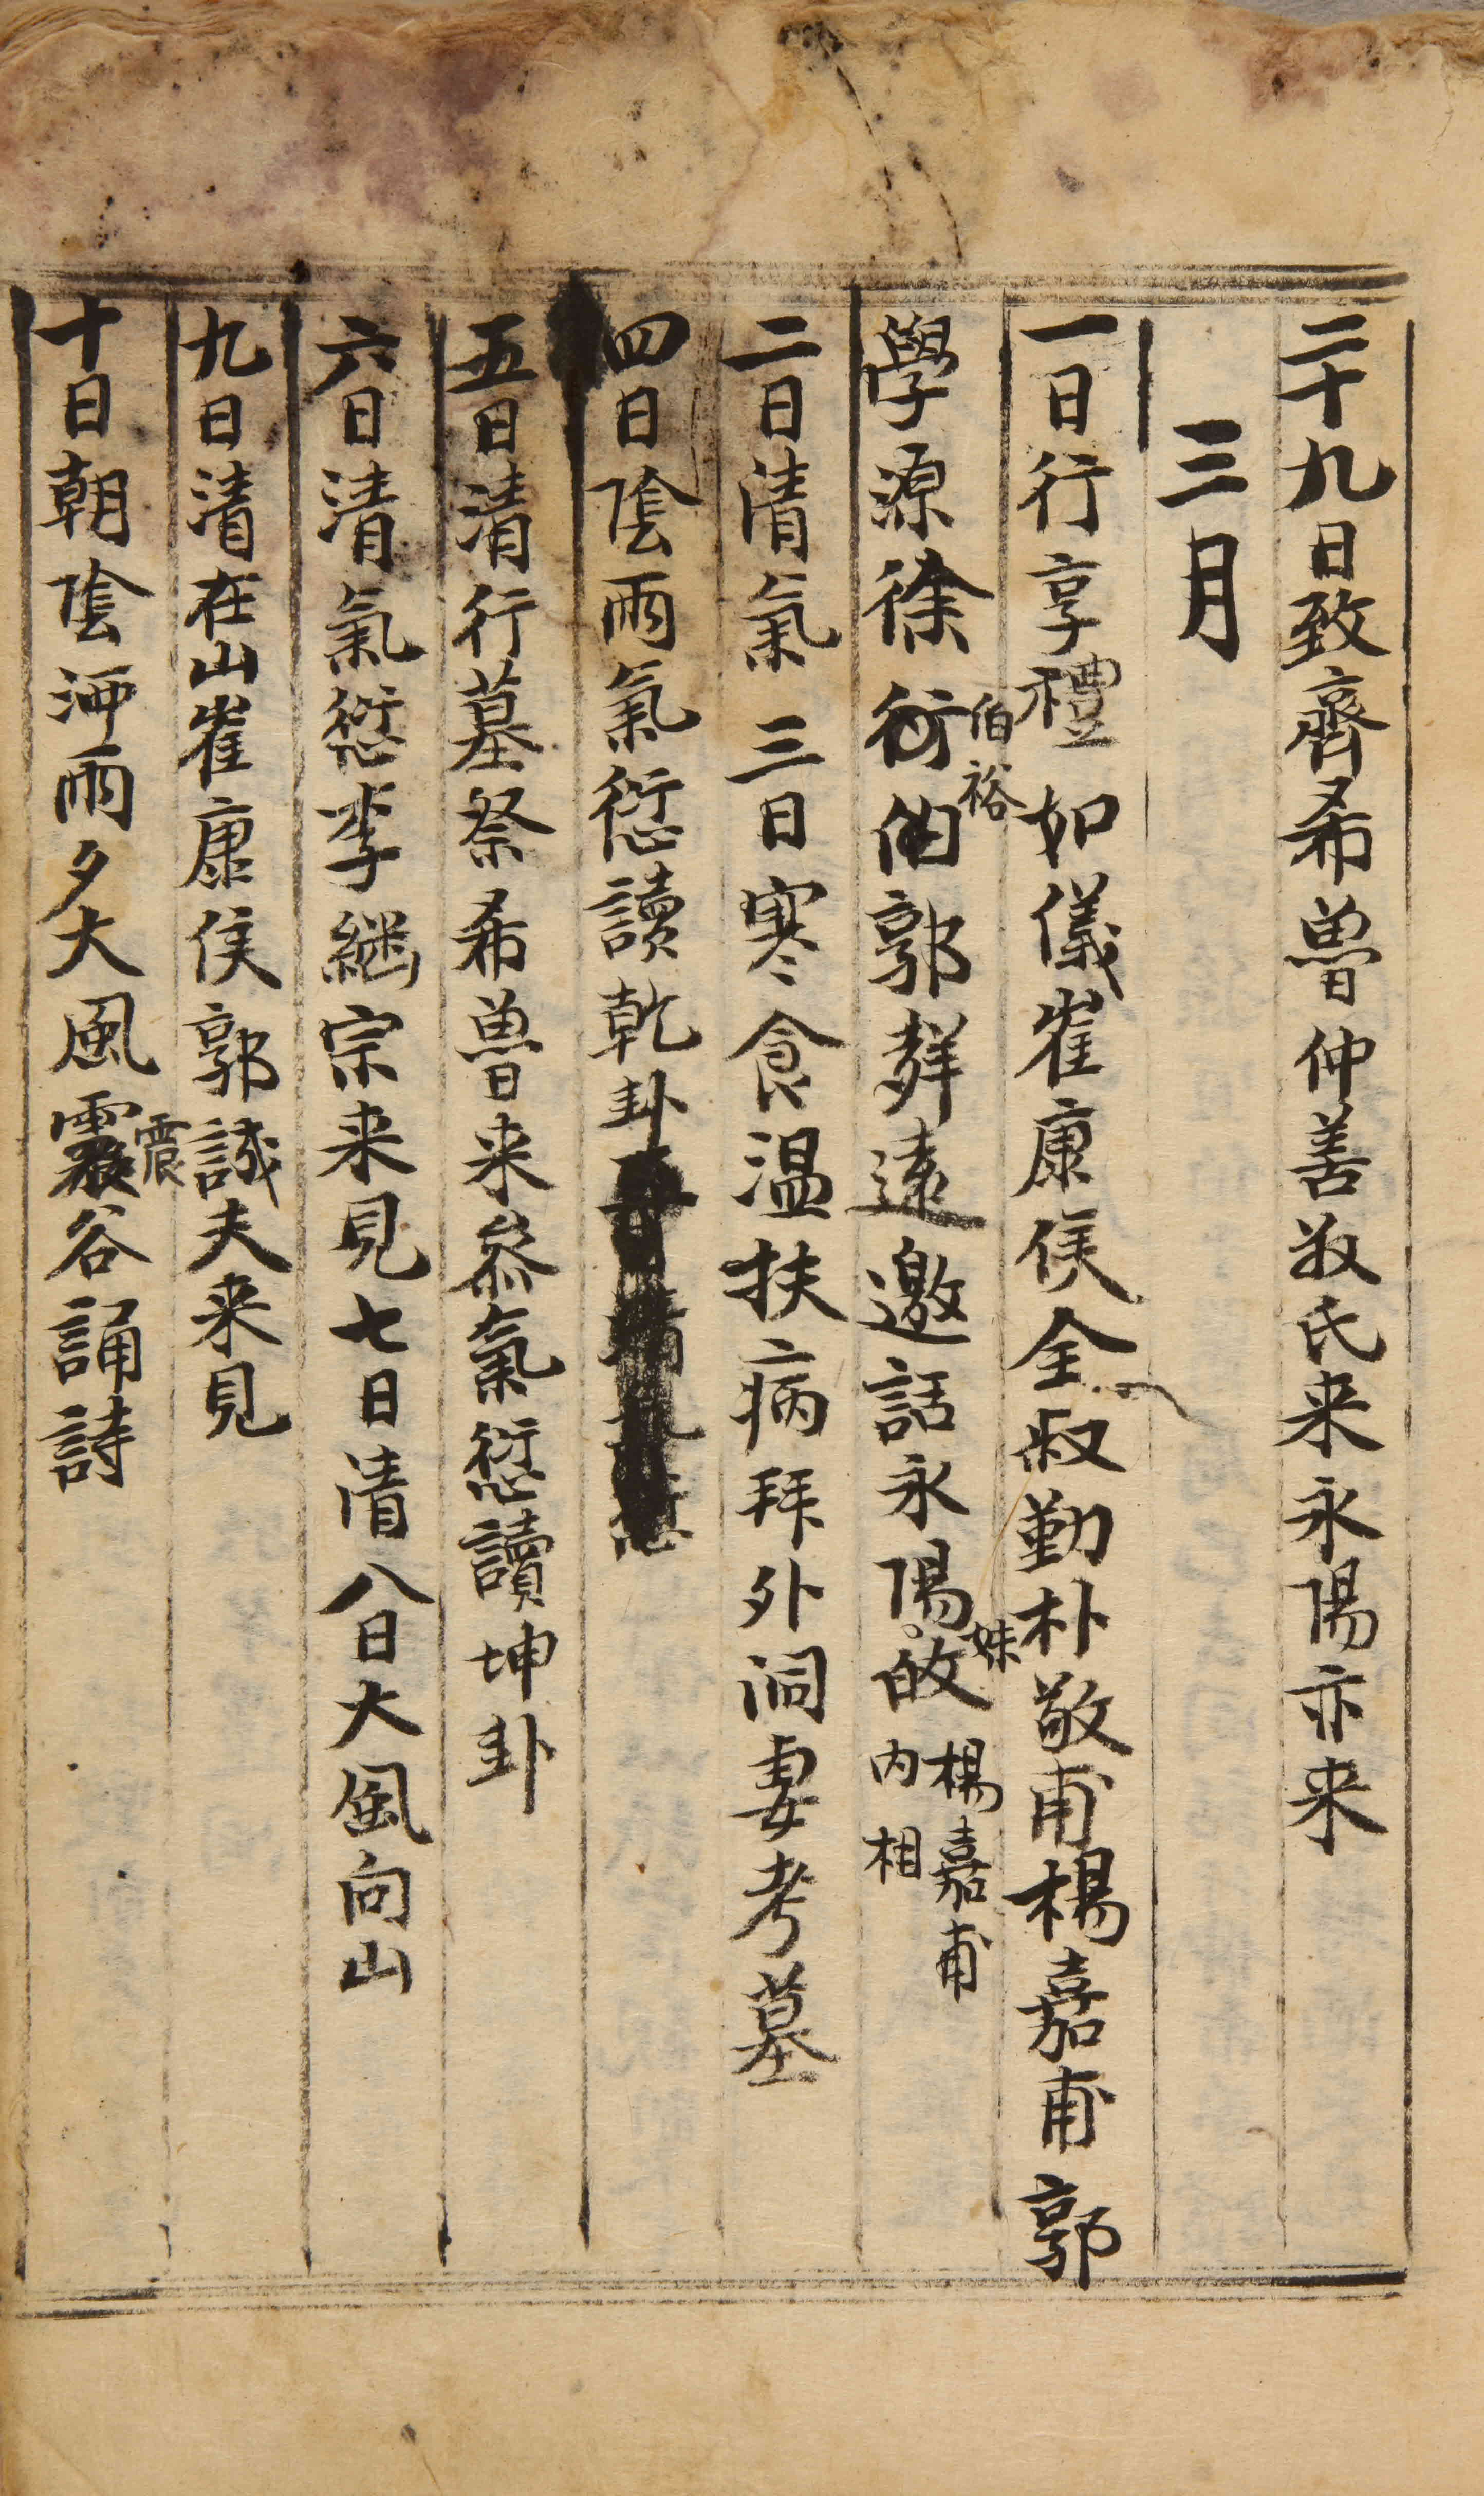 二十九日致齊希魯仲善叔氏来永陽亦来
三月
一日行享禮如儀崔康侯全叔勤朴敬甫楊嘉甫郭
學源徐伯裕郭群遠邀話永陽妹楊嘉甫内相
二日清氣 三日寒食温扶病拜外祠妻考墓
四日隂雨氣愆讀乾卦
五日清行墓祭希魯来叅氣愆讀坤卦
六日清氣愆李継宗来見七日清八日大風向山
九日清在山崔康侯郭誠夫来見
十日朝隂洒雨夕大風震谷誦詩